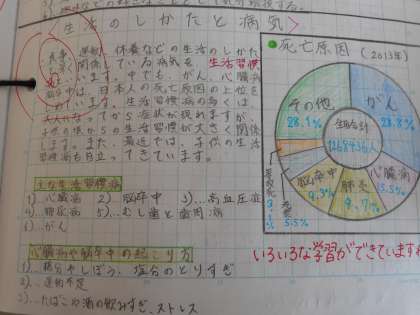 生活のしかたと病気>
食事、運動、休養などの生活のしかた
に関係している病気を生活習慣
病といいます。中でも、がん、心臓病
脳卒中は、日本人の死亡原因の上位を
しめています。生活習慣病の多くは、
大人になってから症状が現れますが、
子供の頃からの生活習慣が大きく関係
します。また、最近では、子供の生活
習慣病も目立ってきています。
主な生活習慣病
1)…心臓病 2)…脳卒中 3)…高血圧症
4)…糖尿病 5)…むし歯と歯周病
6)…がん
心臓病や脳卒中の起こり方
1)…糖分やしぼう、塩分のとりすぎ
2)…運動不足
3)…たばこや酒の飲みすぎ、ストレス
●死亡原因(2013年)
その他
28.1%
がん
28.8%
全体合計
1268436人
心臓病
15.5%
肺炎
9.7%
脳卒中
9.3%
老衰
5.5%
いろいろな学習ができていますね